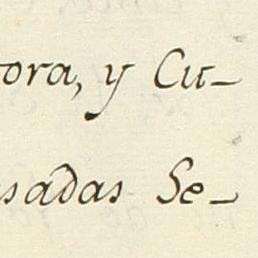 ora, y Cu-
sadas Se-